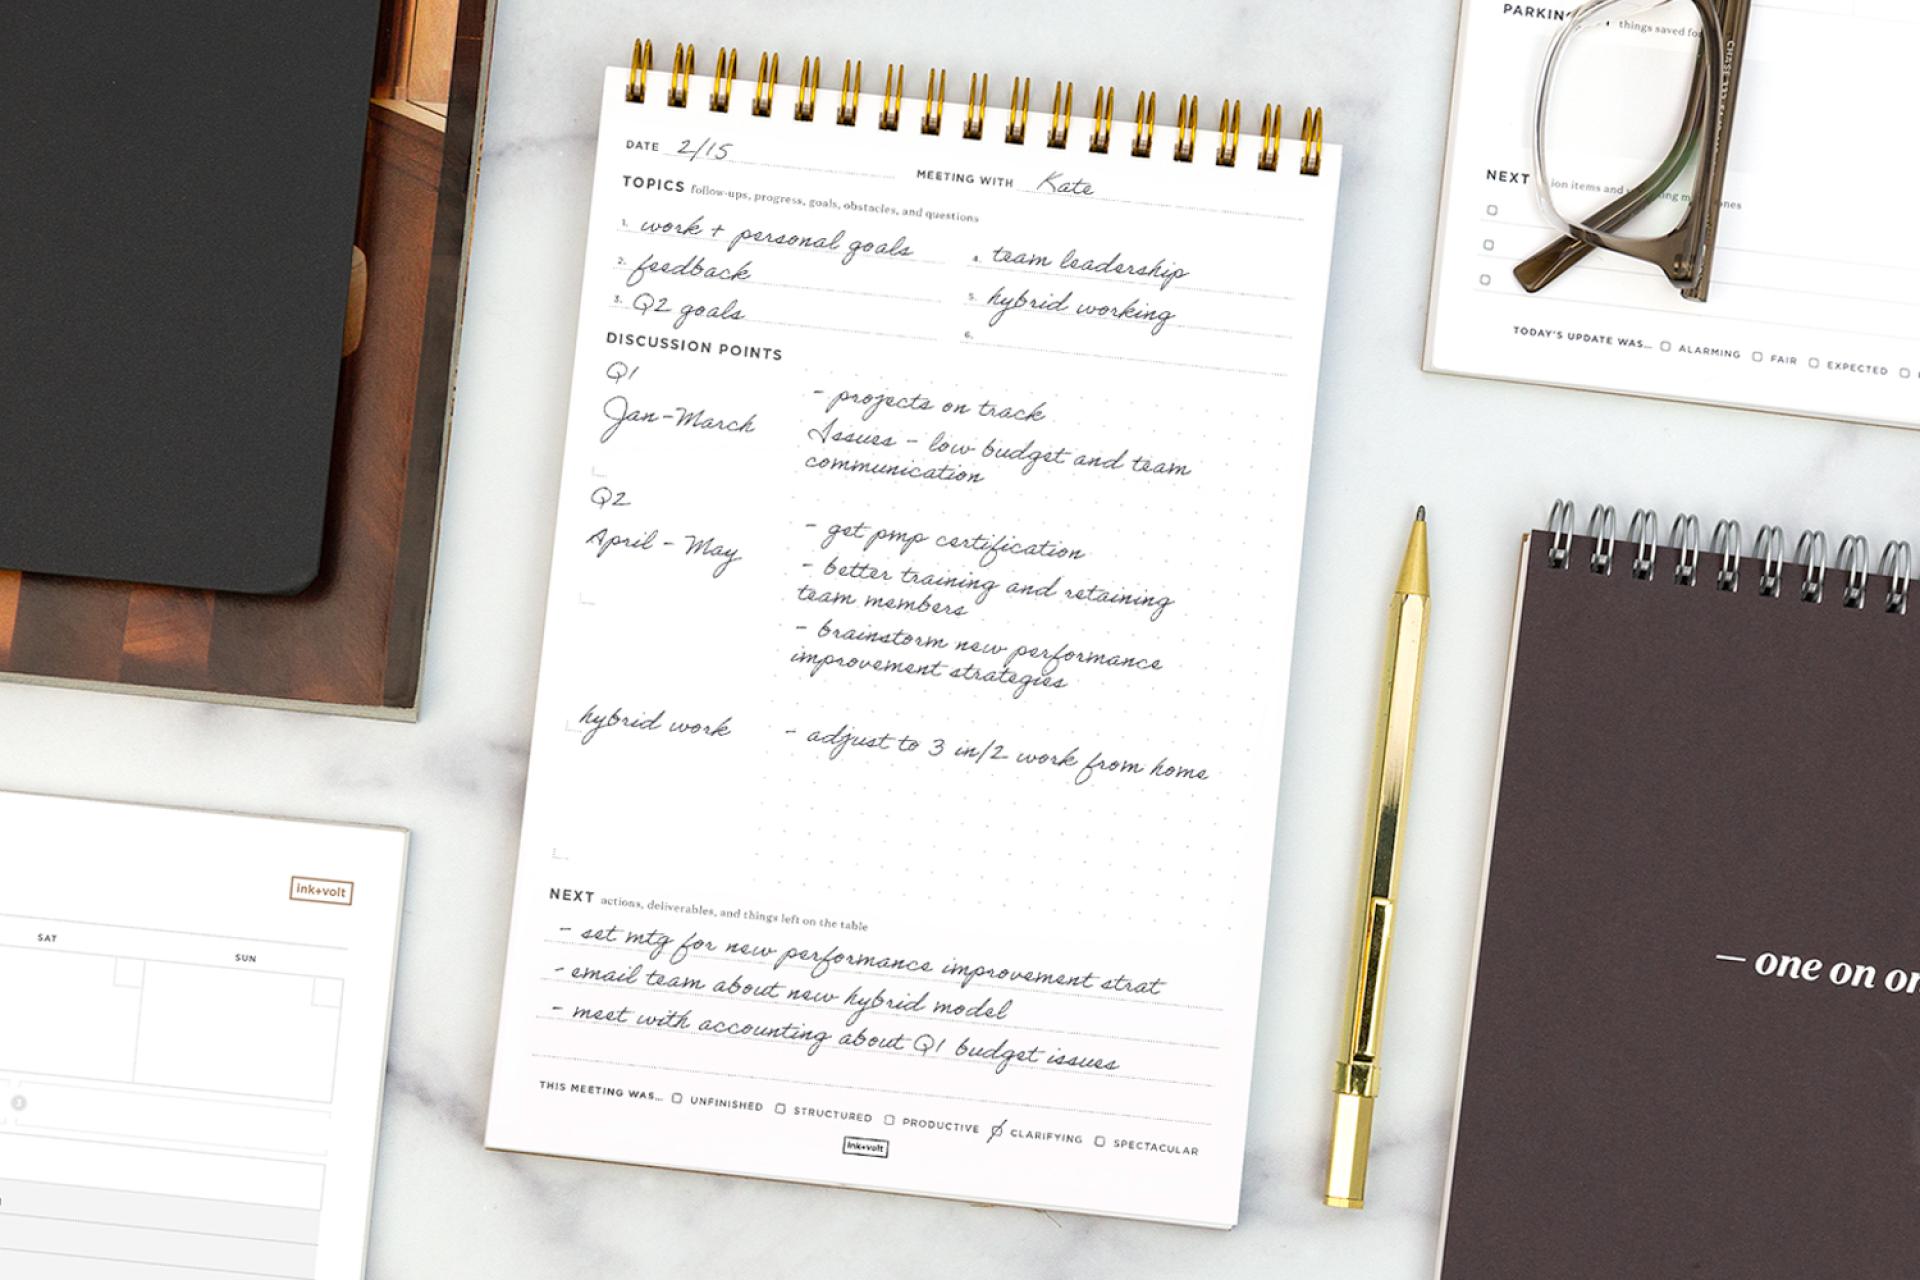 DATE 2/15
MEETING WITH Kate
TOPICS follow-ups, progress, goals, obstacles, and questions
1. work + personal goals
2. feedback
3. Q2 goals
4. team leadership
5. hybrid working
6.
DISCUSSION POINTS
Q1
Jan-March
- projects on track
Issues - low budget and team
communication
Q2
April - May
- get pmp certification
- better training and retaining
team members
- brainstorm new performance
improvement strategies
hybrid work
- adjust to 3 in/2 work from home
NEXT actions, deliverables, and things left on the table
- set mtg for new performance improvement strat
- email team about new hybrid model
- meet with accounting about Q1 budget issues
THIS MEETING WAS... UNFINISHED STRUCTURED PRODUCTIVE CLARIFYING SPECTACULAR
ink+volt
things saved
NEXT
items and
TODAY'S UPDATE WAS... ALARMING FAIR EXPECTED
— one on
ink+volt
SAT SUN
3